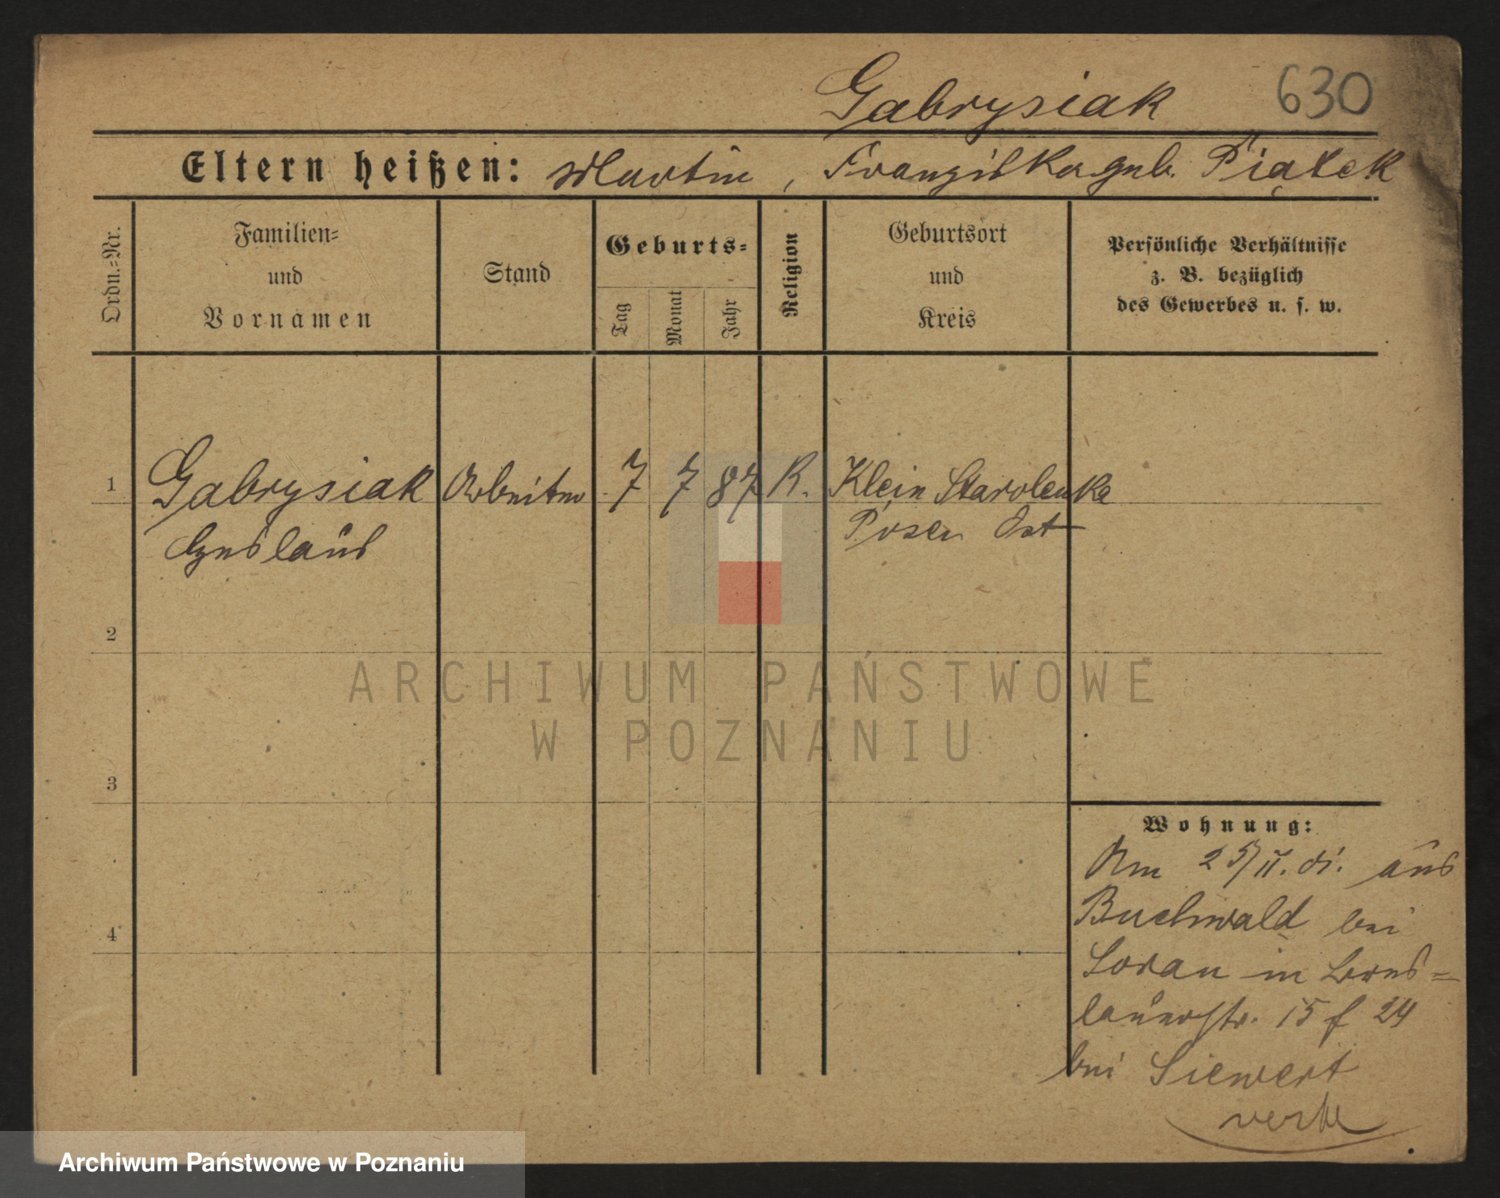 Gabrysiak 630
Eltern heißen: Martin, Franziska geb. Piątek
Ordn.-Nr.
Familien-
und
Vornamen
Stand
Geburts-
Tag
Monat
Jahr
Religion
Geburtsort
und
Kreis
Persönliche Verhältnisse
z. B. bezüglich
des Gewerbes u. s. w.
1 Gabrysiak Arbeiter 7 7 87 K. Klein Starolenka
Czeslaus Posen Ost
2
ARCHIWUM PAŃSTWOWE
W POZNANIU
3
Wohnung:
Am 25/II. 01. aus
Buchwald bei
4
Soran in Bres=
lauerstr. 15 f 24
bei Siewert
Archiwum Państwowe w Poznaniu